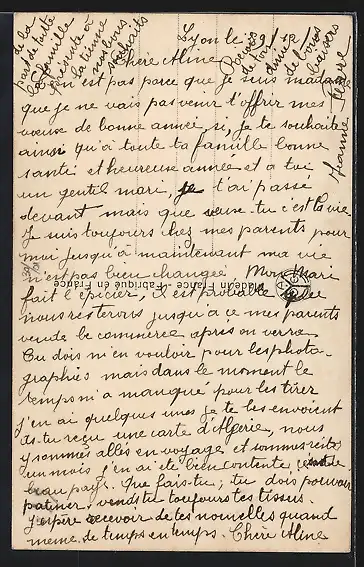 Lyon le 29/12/
Chère Aline
n'est pas parce que je suis madame
que je ne vais pas venir t'offrir mes
vœux de bonne année, si, je te souhaite
ainsi qu'à toute ta famille bonne
santé et heureuse année et a toi
un gentil mari, je t'ai passé
devant mais que veux-tu c'est la vie
Je suis toujours chez mes parents pour
moi jusqu'à maintenant ma vie
n'est pas bien changée, Mon Mari
fait l'épicier, il est probable que
nous resterons jusqu'à ce mes parents
vende le commerce après on verra
Tu dois m'en vouloir pour les photo-
graphies mais dans le moment le
temps m'a manqué pour les tirer
j'en ai quelques unes je te les envoient
As-tu reçu une carte d'Algérie, nous
y sommes allés en voyage et sommes restés
un mois j'en ai été bien contente,
beau pays. Que fais-tu, tu dois pouvoir
patiner, vends tu toujours tes tissus.
J'espère recevoir de tes nouvelles quand
meme de temps en temps. Chère Aline
Reçois
de ton
amie
de bons
baisers
Jeanne
de la
part de toute
la famille
présente à
la tienne
meilleurs
souhaits
Made in France - Fabriqué en France